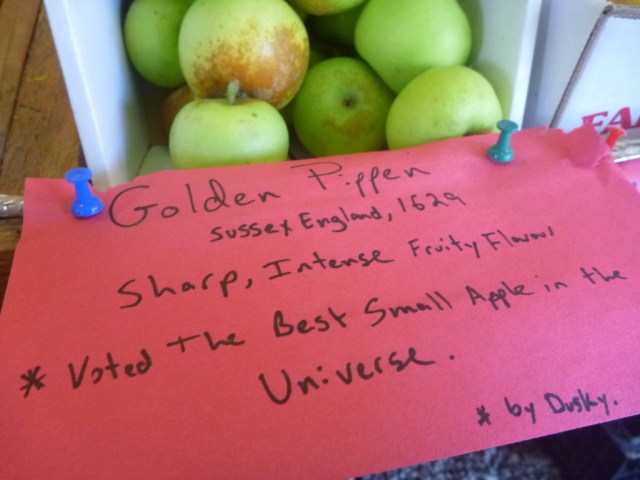 Golden Pippen
Sussex England, 1629
Sharp, Intense Fruity Flavour
* Voted The Best Small Apple in the
Universe.
* by Dusky.
FA